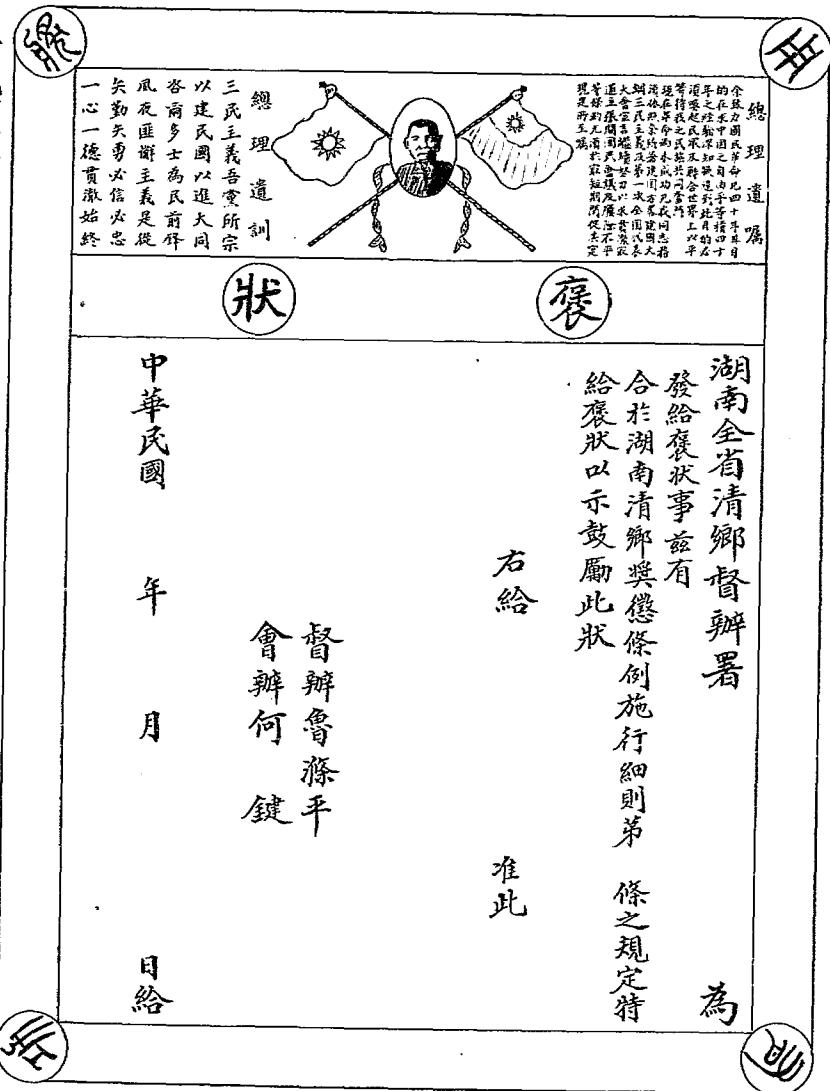 總理遺囑
余致力國民革命凡四十年其目
的在求中國之自由平等積四十
年之經驗深知欲達到此目的必
須喚起民眾及聯合世界上以平
等待我之民族共同奮鬥
現在革命尚未成功凡我同志務
須依照余所著建國方略建國大
綱三民主義及第一次全國代表
大會宣言繼續努力以求貫澈最
近主張開國民會議及廢除不平
等條約尤須於最短期間促其實
現是所至囑
總理遺訓
三民主義吾黨所宗
以建民國以進大同
咨爾多士為民前鋒
夙夜匪懈主義是從
矢勤矢勇必信必忠
一心一德貫澈始終
褒狀
湖南全省清鄉督辦署 為
發給褒狀事茲有
合於湖南清鄉獎懲條例施行細則第 條之規定特
給褒狀以示鼓勵此狀
右給 准此
督辦魯滌平
會辦何 鍵
中華民國 年 月 日給